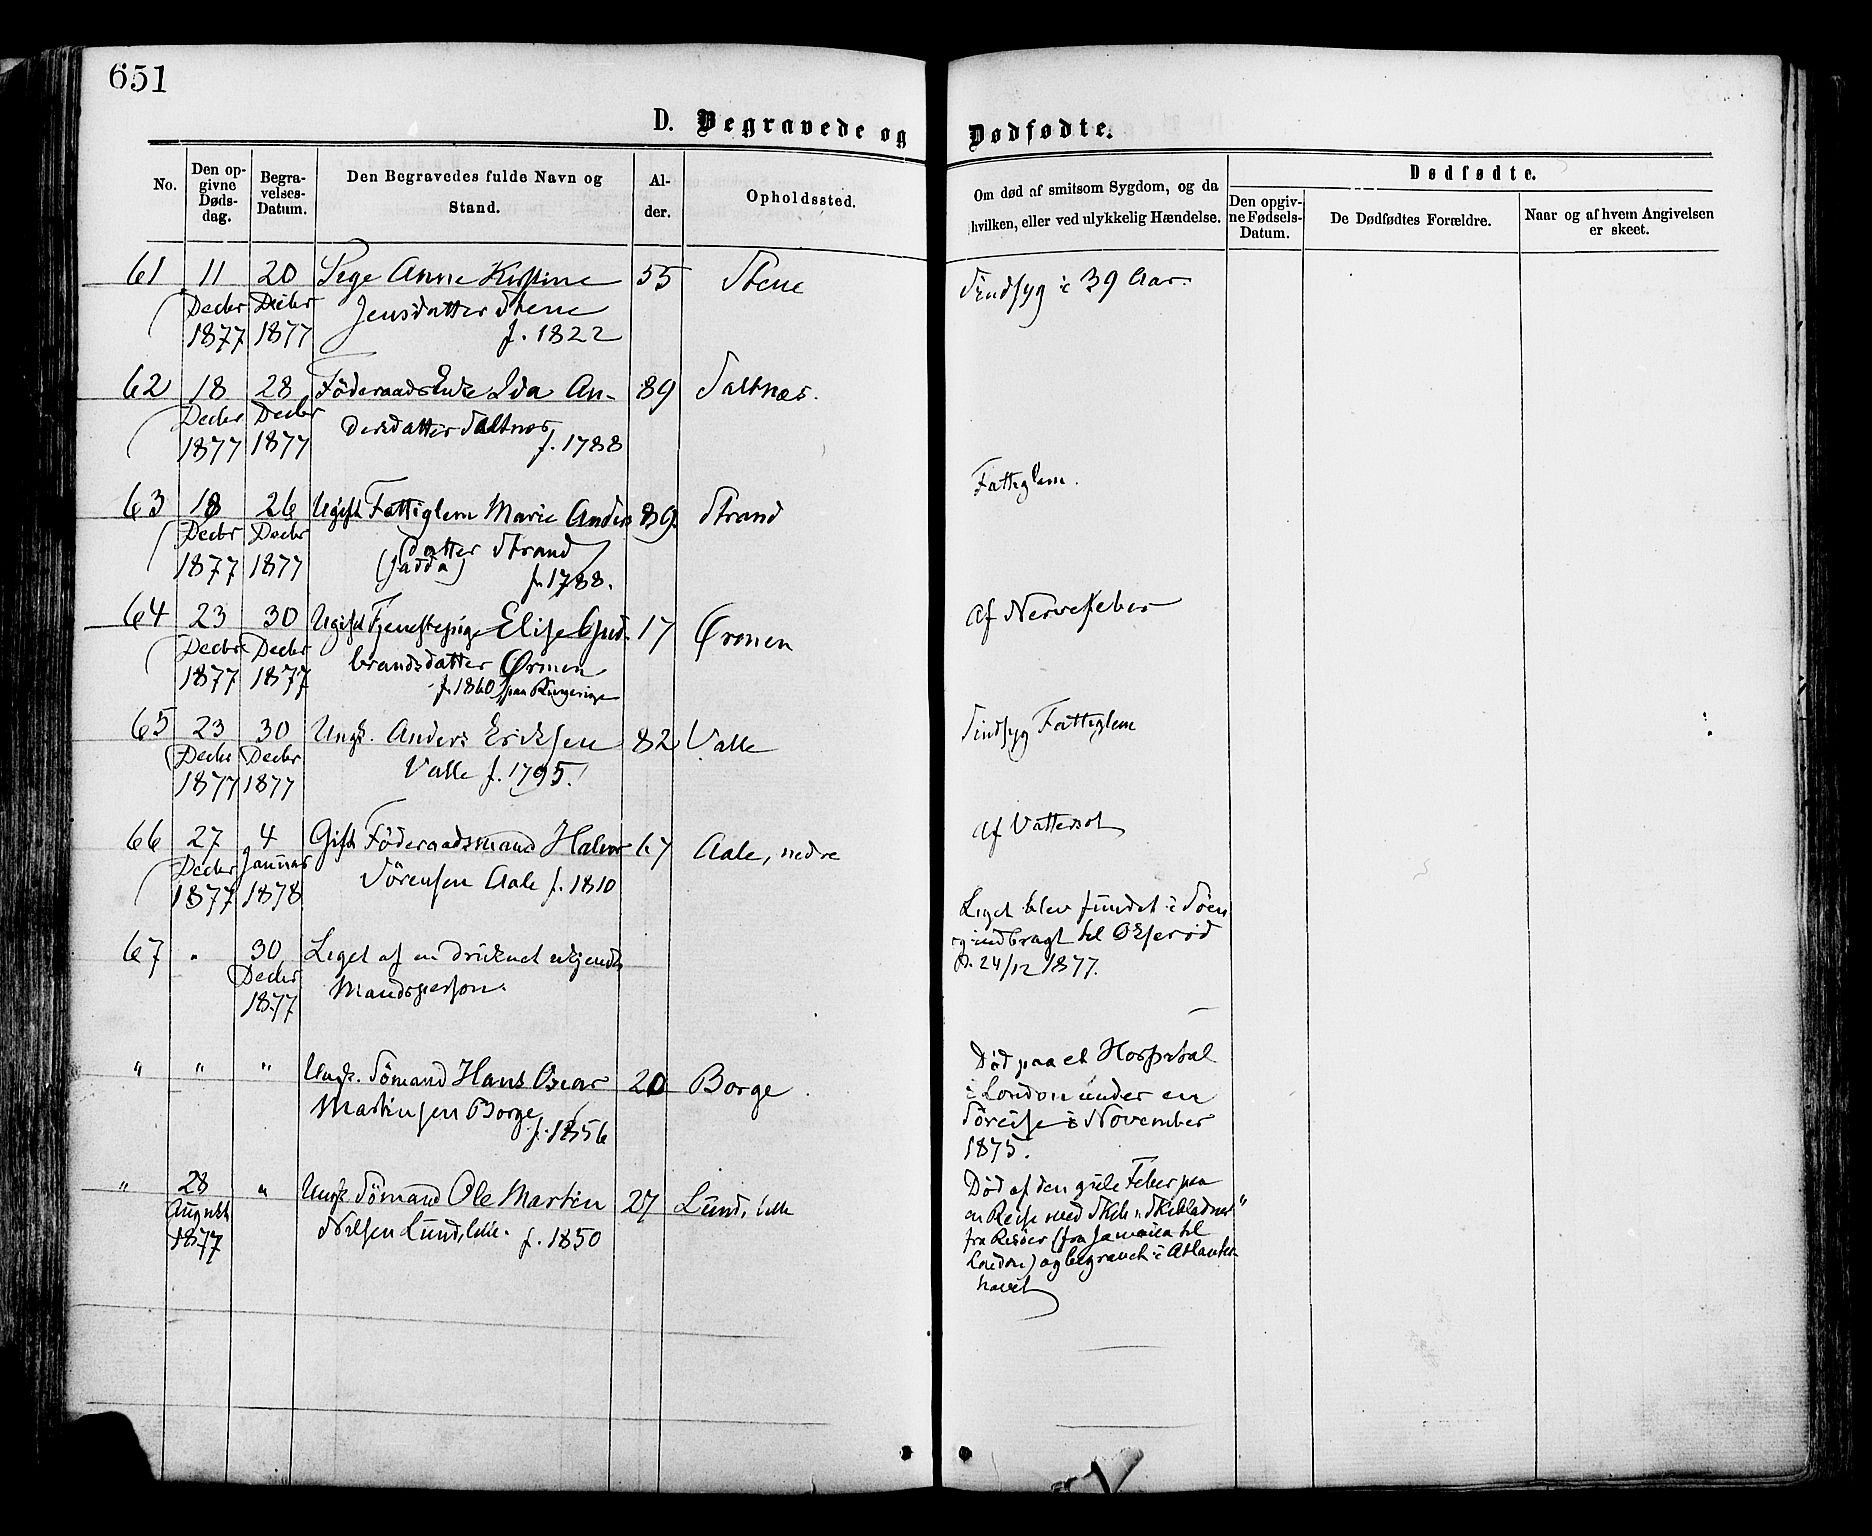 651
D. Begravede og Dødfødte.
No. Den opgivne Dødsdag. Begravelses-Datum. Den Begravedes fulde Navn og Stand. Alder. Opholdssted. Om død af smitsom Sygdom, og da hvilken, eller ved ulykkelig Hændelse. Dødfødte.
Den opgivne Fødsels-Datum. De Dødfødtes Forældre. Naar og af hvem Angivelsen er skeet.
61 11 20 Pige Anne Kirstine 55 Stene Sindsyg i 39 Aar.
Decbr Decbr Jensdatter Stene
1877 1877 f. 1822
62 18 28 Föderaads Enke Ida An- 89 Saltnæs.
Decbr Decbr dersdatter Saltnæs
1877 1877 f. 1788
63 18 26 Ugift Fattiglem Marie Anders 89 Strand Fattiglem.
Decbr Decbr datter Strand
1877 1877 f. 1788.
64 23 30 Ugift Tjenestepige Elise Gud- 17 Ørmen Af Nervefeber
Decbr Decbr brandsdatter Ørmen
1877 1877 f. 1860, paa Ringerige
65 23 30 Ungk. Anders Eriksen 82 Valle Sindsyg Fattiglem
Decbr Decbr Valle f. 1795.
1877 1877
66 27 4 Gift Föderaadsmand Halvor 67 Aale, nedre Af Vattersot
Decbr Januar Sörensen Aale f. 1810
1877 1878
67 " 30 Liget af en druknet ukjendt Liget blev fundet i Söen
Decbr Mandsperson. og indbragt til Oxerød
1877 d. 24/12 1877.
" " " Ungk. Sömand Hans Oscar 20 Borge Død paa et Hospital
Martinsen Borge i London under en
f. 1856 Söreise i November
1875.
" 28 " Ungk Sömand Ole Martin 27 Lund, lille Død af den gule Feber paa
August Nilsen Lund, lille. f. 1850 en Reise med Skib „Skibladner"
1877 fra Risöer (fra Jamaica til
London) og begravet i Atlanter
havet